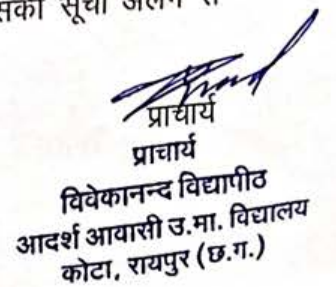 सकी सूची अलग स
प्राचार्य
प्राचार्य
विवेकानन्द विद्यापीठ
आदर्श आवासी उ.मा. विद्यालय
कोटा, रायपुर (छ.ग.)